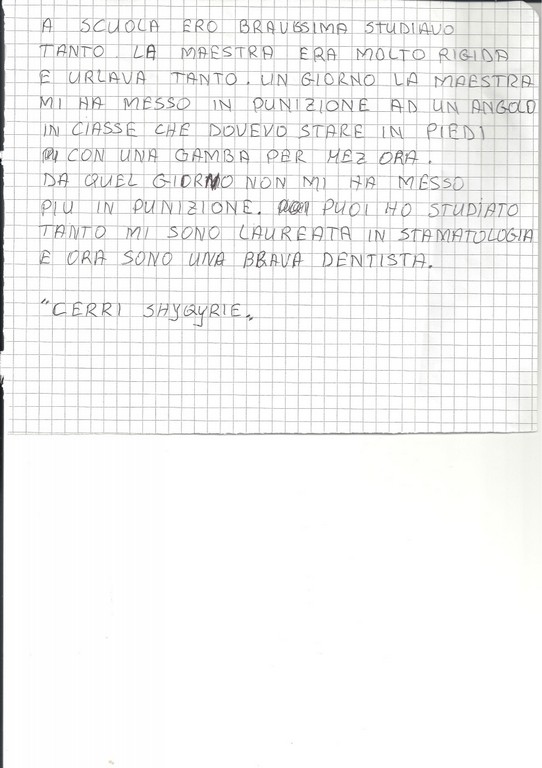 A SCUOLA ERO BRAVISSIMA STUDIAVO
TANTO. LA MAESTRA ERA MOLTO RIGIDA
E URLAVA TANTO. UN GIORNO LA MAESTRA
MI HA MESSO IN PUNIZIONE AD UN ANGOLO
IN CLASSE CHE DOVEVO STARE IN PIEDI
CON UNA GAMBA PER MEZ ORA.
DA QUEL GIORNO NON MI HA MESSO
PIU IN PUNIZIONE. PUOI HO STUDIATO
TANTO MI SONO LAUREATA IN STAMATOLOGIA
E ORA SONO UNA BRAVA DENTISTA.
"CERRI SHYQYRIE"